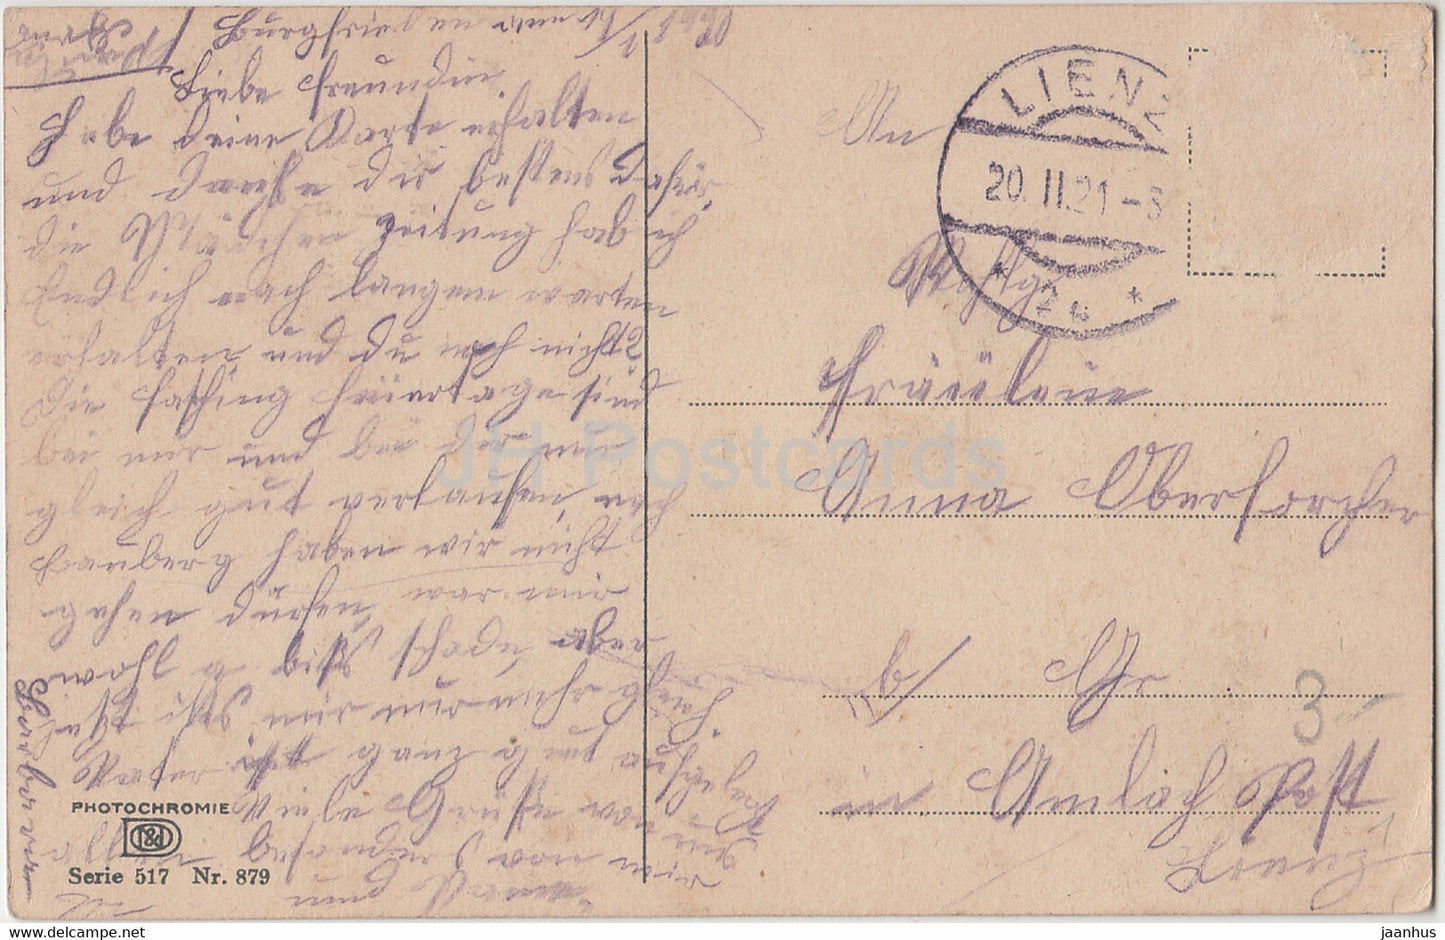 Burgfrieden am
Liebe Freundin
Habe deine Karte erhalten
und danke dir bestens dafür,
die Mädchen Zeitung hab ich
Endlich nach langem warten
erhalten und du noch nicht?
Die Fasching feiertage sind
bei mir und bei dir
gleich gut verlaufen, nach
haben wir nicht
gehen dürfen, war mir
wohl a biß schade, aber
jetzt ists mir nur mehr gleich.
Vater ist ganz gut aufgelegt
Viele Grüße von uns
allen besonders von mir
und
An
Fräulein
Anna Oberforcher
b/ Gr
in Amlach Post
Lienz
LIENZ
20. II. 21 - 3
* 2a *
3-
PHOTOCHROMIE
Serie 517 Nr. 879
JH Postcards
jaanhus